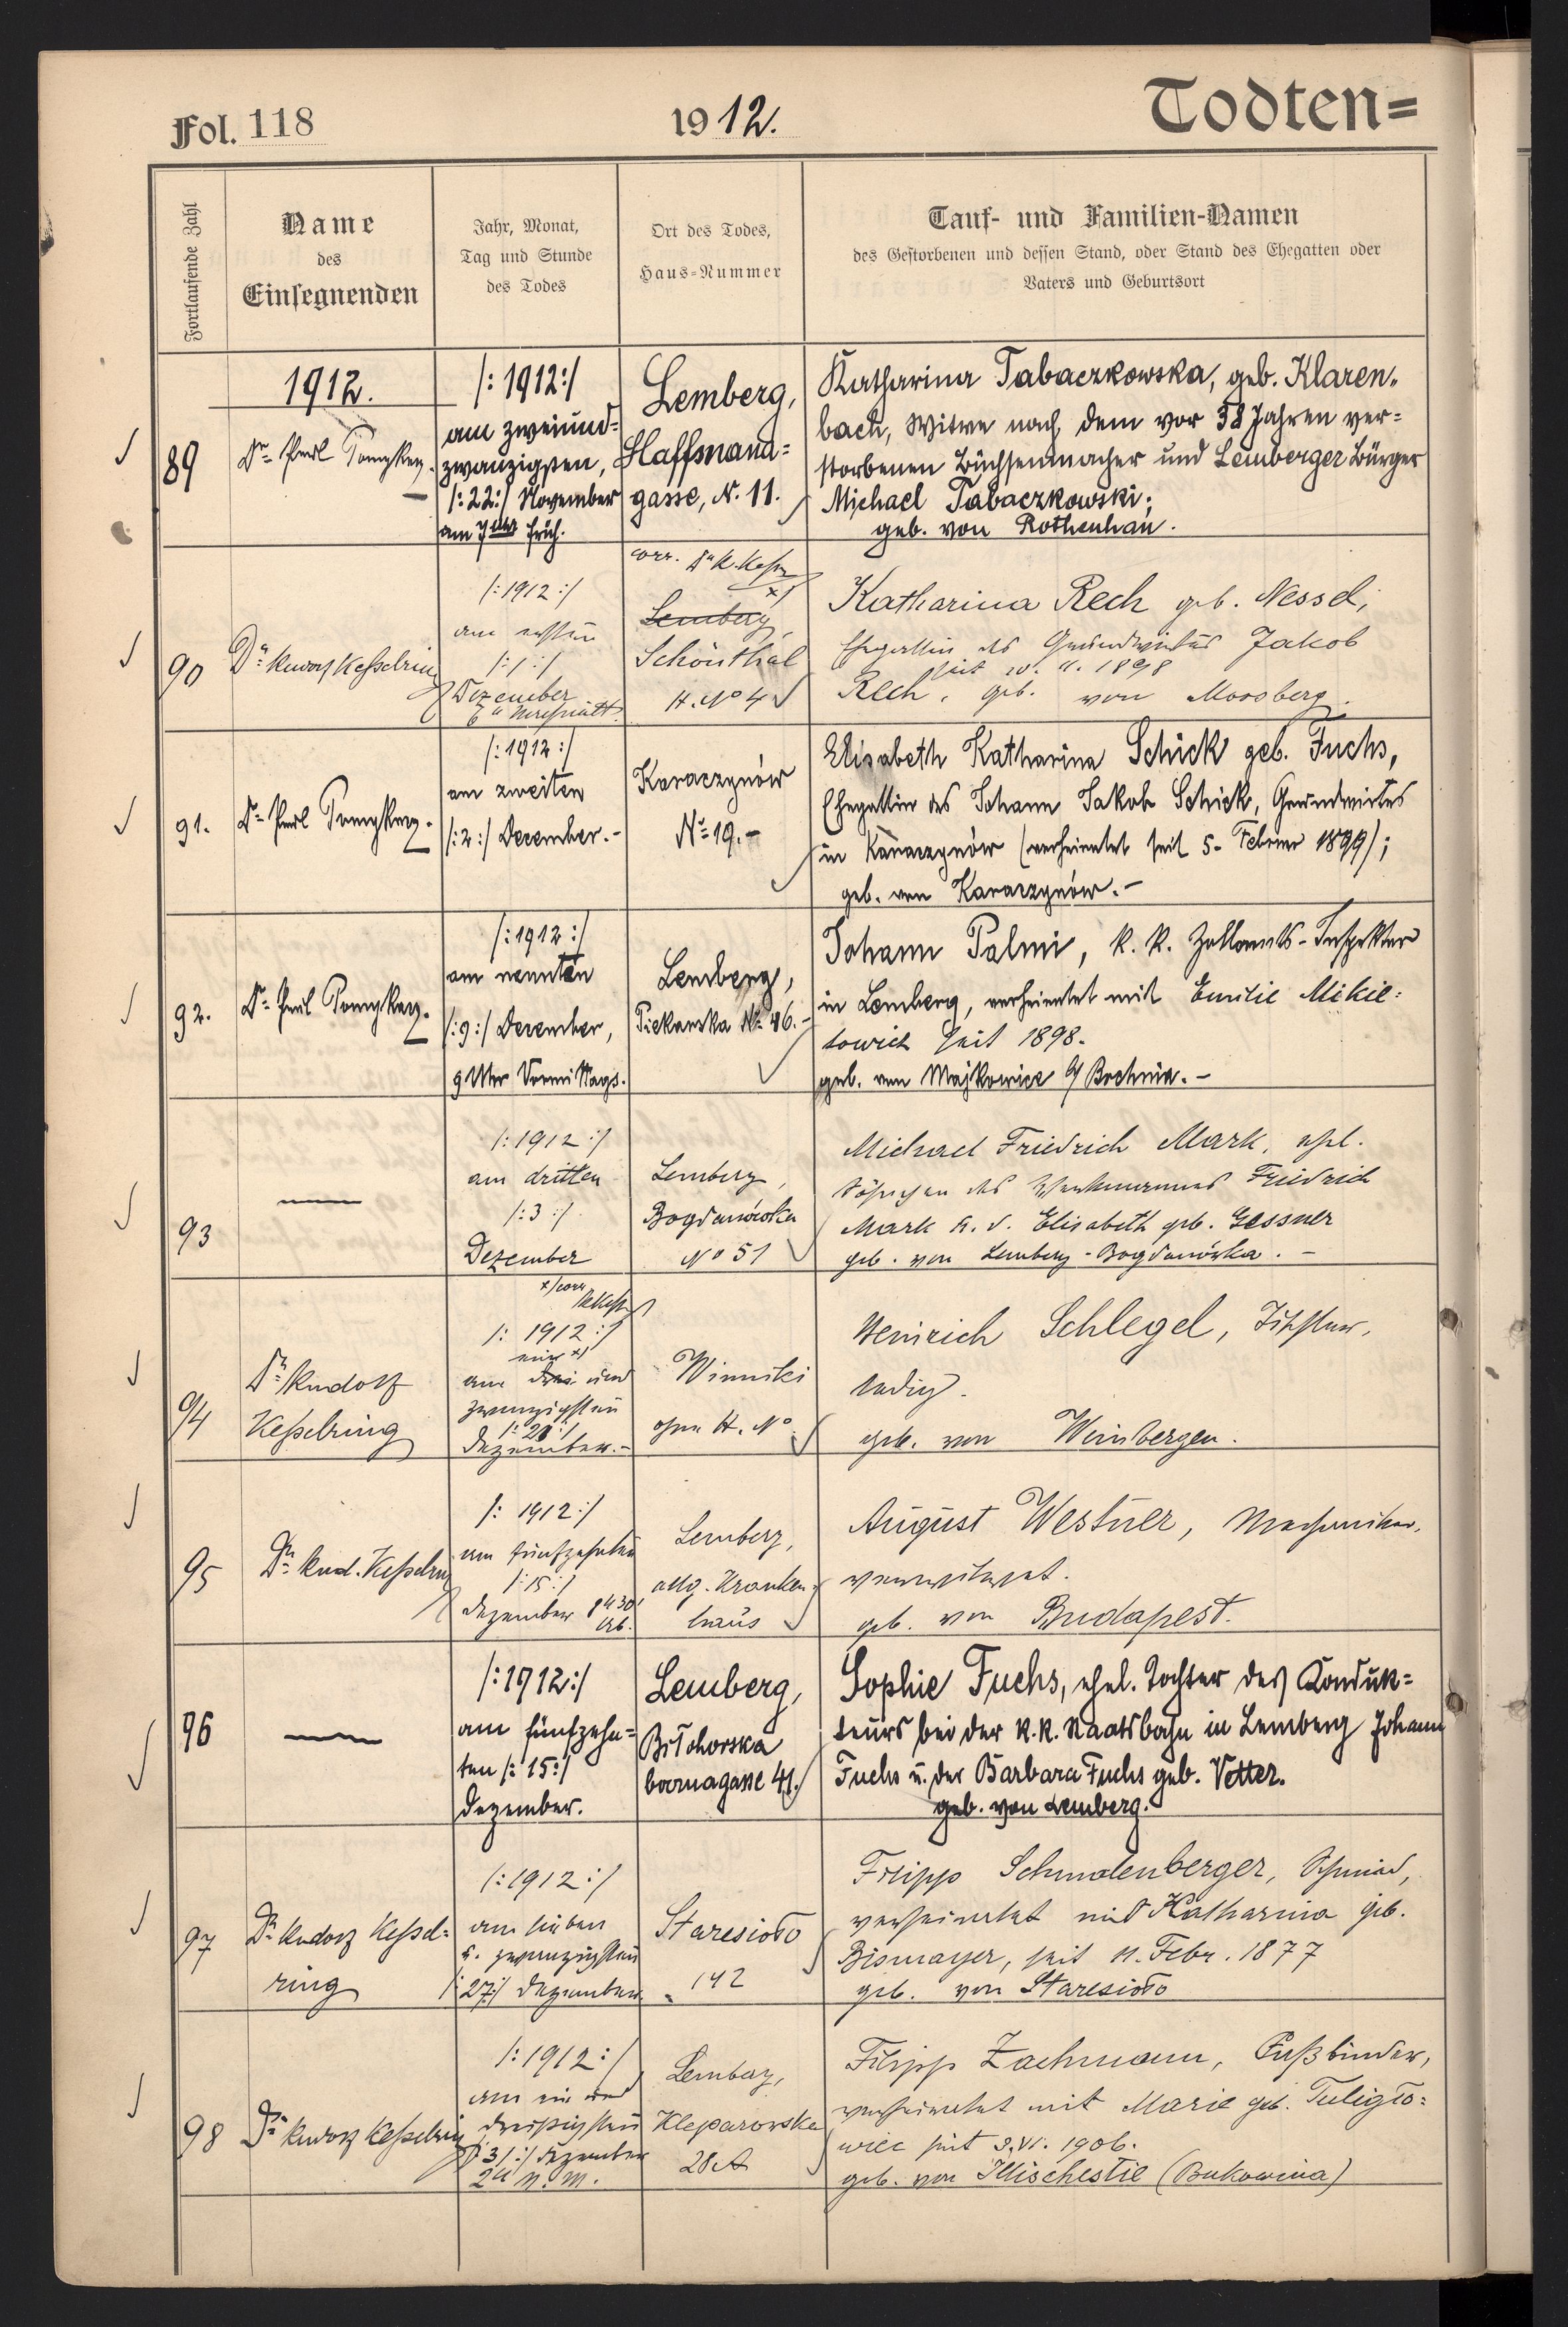 Fol. 118
1912.
Todten=
Fortlaufende Zahl
Name
des
Einsegnenden
Jahr, Monat,
Tag und Stunde
des Todes
Ort des Todes,
Haus-Nummer
Tauf- und Familien-Namen
des Gestorbenen und dessen Stand, oder Stand des Ehegatten oder
Vaters und Geburtsort
1912.
89
Dr.
/:1912:/
am zweiund=
zwanzigsten,
/:22:/ November
am 7 Uhr früh.
Lemberg,
gasse, N. 11.
Katharina Tabaczkowska, geb. Klaren=
bach, Witwe nach dem vor 38 Jahren ver=
storbenen Büchsenmacher und Lemberger Bürger
Michael Tabaczkowski;
geb. von Rothenhan.
90
Dr. Rudolf Kesselring
/:1912:/
am ersten
/:1:/
Dezember
corr. Dr R. Kess
Lemberg,
Schönthal
H. No 4
Katharina Rech geb. Nessel,
Ehegattin des Grundwirtes Jakob
seit 1898
Rech, geb. von Moosberg.
91.
Dr.
/:1912:/
am zweiten
/:2:/ Dezember.-
Karaczynów
No 19.-
Elisabeth Katharina Schick geb. Fuchs,
Ehegattin des Johann Jakob Schick, Grundwirtes
in Karaczynów (verheiratet seit 5. Februar 1899);
geb. von Karaczynów.-
92.
Dr.
/:1912:/
am neunten
/:9:/ Dezember,
9 Uhr Vormittags.
Lemberg,
Piekarska No 46.-
Johann Palmi, k. k. Zollamts-Inspektor
in Lemberg, verheiratet mit Emilie Mikie=
towich seit 1898.
geb. von Majkowice b/ Bochnia.-
93
/:1912:/
am dritten
/:3:/
Dezember
Lemberg,
Bogdanówka
No 51
Michael Friedrich Mark, ehel.
Söhnchen des Friedrich
Mark u. d. Elisabeth geb. Gessner
geb. von Lemberg-Bogdanówka.-
94
Dr. Rudolf
Kesselring
x/corr
/:1912:/
ein x/
am drei und
zwanzigsten
/:21:/
Dezember.-
Winniki
ohne H. No
Heinrich Schlegel, Tischler,
ledig.
geb. von Weinbergen.
95
Dr. Rud. Kesselring
/:1912:/
am fünfzehnten
/:15:/
Dezember 8 U 30
Ab.
Lemberg,
allg. Kranken=
haus
August Westner, Mechaniker,
verwitwet.
geb. von Budapest.
96
/:1912:/
am fünfzehn=
ten /:15:/
Dezember.
Lemberg,
Sophie Fuchs, ehel. Tochter des Konduk=
teurs bei der k.k. Staatsbahn in Lemberg Johann
Fuchs u. der Barbara Fuchs geb. Vetter.
geb. von Lemberg.
97
Dr. Rudolf Kessel=
ring
/:1912:/
am sieben
u. zwanzigsten
/:27:/ Dezember
Staresioło
142
Filipp Schmalenberger, Schmied,
verheiratet mit Katharina geb.
Bismayer, seit 11. Febr. 1877
geb. von Staresioło
98
Dr. Rudolf Kesselring
/:1912:/
am ein und
dreißigsten
/:31:/ Dezember
2 U N. M.
Lemberg,
Kleparowska
28A
Filipp Zachmann, Faßbinder,
verheiratet mit Marie geb. Tuligło=
wiec seit 3.VI. 1906.
geb. von Illischestie (Bukowina)